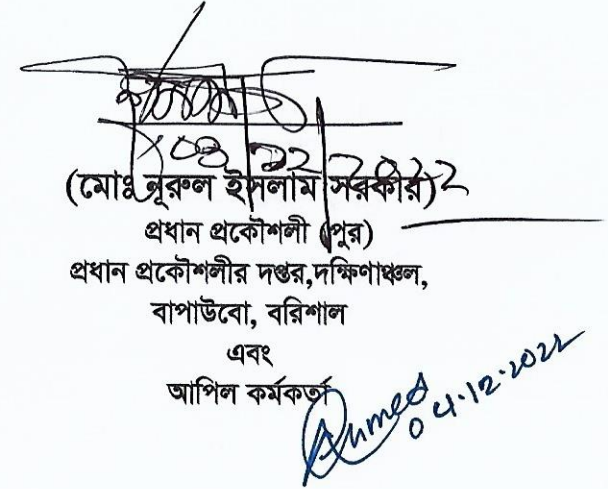 ০৪/১২/২০২২
(মোঃ নূরুল ইসলাম সরকার)
প্রধান প্রকৌশলী (পুর)
প্রধান প্রকৌশলীর দপ্তর,দক্ষিণাঞ্চল,
বাপাউবো, বরিশাল
এবং
আপিল কর্মকর্তা
Ahmed
04.12.2022